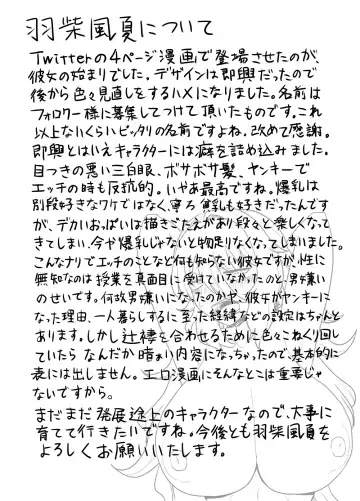 羽柴風夏について
Twitterの4ページ漫画で登場させたのが、
彼女の始まりでした。デザインは即興だったので
後から色々見直しをするハメになりました。名前は
フォロワー様に募集してつけて頂いたものです。これ
以上ないくらいピッタリの名前ですよね。改めて感謝。
即興とはいえキャラクターには癖を詰め込みました。
目つきの悪い三白眼、ボサボサ髪、ヤンキーで
エッチの時も反抗的。いやあ最高ですね。爆乳は
別段好きなワケではなく、寧ろ貧乳も好きだったんです
が、デカいおっぱいは描きごたえがあり段々と楽しくなっ
てきてしまい、今や爆乳じゃないと物足りなくなってしまいました。
こんなナリでエッチのことなど何も知らない彼女ですが、性に
無知なのは授業を真面目に受けていなかったのと、男嫌い
のせいです。何故男嫌いになったのかや、彼女がヤンキーに
なった理由、一人暮らしするに至った経緯などの設定はちゃんと
あります。しかし辻褄を合わせるために色々こねくり回し
ていたら なんだか暗い内容になっちゃったので、基本的に
表には出しません。エロ漫画にそんなとこは重要じゃ
ないですから。
まだまだ発展途上のキャラクターなので、大事に
育てて行きたいですね。今後とも羽柴風夏を
よろしくお願いいたします。